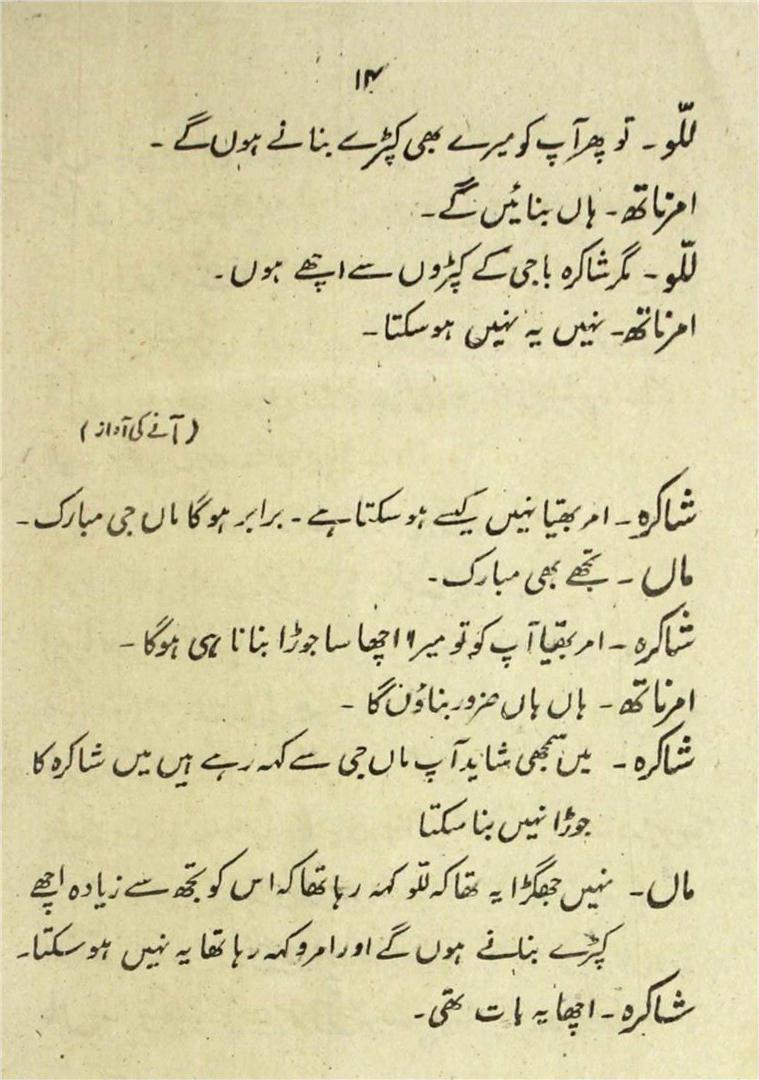 ۱۴
للّو ۔ تو پھر آپ کو میرے بھی کپڑے بنانے ہوں گے ۔
امرناتھ ۔ ہاں بنائیں گے ۔
للّو ۔ مگر شاکرہ باجی کے کپڑوں سے اچھے ہوں ۔
امرناتھ ۔ نہیں یہ نہیں ہو سکتا ۔
( آنے کی آواز )
شاکرہ ۔ امر بھیّا نہیں کیسے ہو سکتا ہے ۔ برابر ہو گا ماں جی مبارک ۔
ماں ۔ تجھے بھی مبارک ۔
شاکرہ ۔ امر بھیّا آپ کو تو میرا اچھا سا جوڑا بنانا ہی ہو گا ۔
امرناتھ ۔ ہاں ہاں ضرور بناؤں گا ۔
شاکرہ ۔ میں سمجھی شاید آپ ماں جی سے کہہ رہے ہیں میں شاکرہ کا
جوڑا نہیں بنا سکتا
ماں ۔ نہیں جھگڑا یہ تھا کہ للّو کہہ رہا تھا کہ اس کو تجھ سے زیادہ اچھے
کپڑے بنانے ہوں گے اور امرو کہہ رہا تھا یہ نہیں ہو سکتا ۔
شاکرہ ۔ اچھا یہ بات تھی ۔